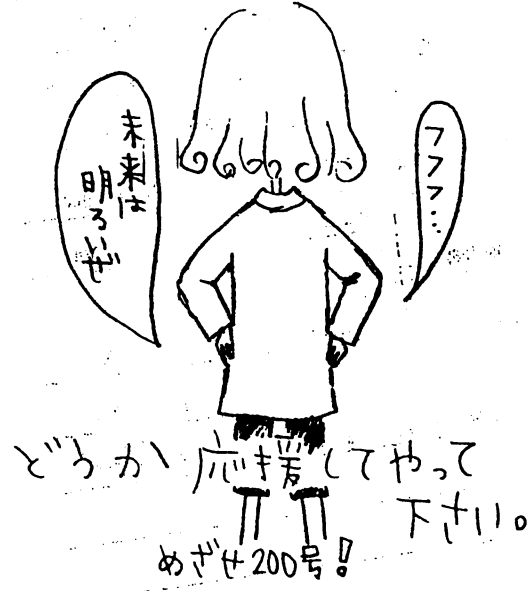 フフフ・・・
未来は
明るいぜ
どうか応援してやって
下さい。
めざせ200号!